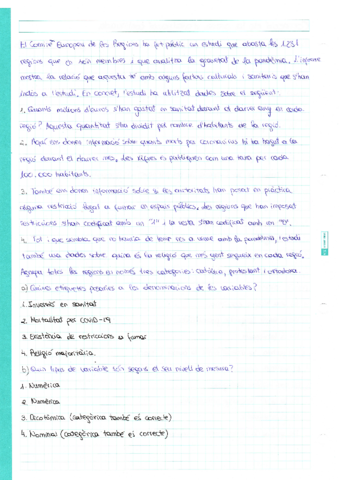 El Comitè Europeu de les Regions ha fet públic un estudi que aborda les 1.251
regions que es són membres i que analitza la gravetat de la pandèmia. L'informe
mostra la relació que aquesta té amb alguns factors culturals i sanitaris que s'han
inclòs a l'estudi. En concret, l'estudi ha utilitzat dades sobre el següent:
1. Quants milions d'euros s'han gastat en sanitat durant el darrer any en cada
regió? Aquesta quantitat s'ha dividit pel nombre d'habitants de la regió.
2. Aquí es donen informació sobre quants morts per coronavirus hi ha hagut a la
regió durant el darrer mes, les xifres es publiquen com una taxa per cada
100.000 habitants.
3. També em donen informació sobre si les autoritats han posat en pràctica
alguna restricció legal a fumar en espais públics, les regions que han imposat
restriccions s'han codificat amb un "1" i la resta s'han codificat amb un "0".
4. Tot i que sembla que no hauria de tenir res a veure amb la pandèmia, l'estudi
també usa dades sobre quina és la religió que més gent segueix en cada regió.
Agrupa totes les regions en només tres categories: catòlica, protestant i ortodoxa.
a) Quines etiquetes posaries a les denominacions de les variables?
1. Inversió en sanitat
2. Mortalitat per COVID-19
3. Existència de restriccions a fumar
4. Religió majoritària.
b) Quin tipus de variable són segons el seu nivell de mesura?
1. Numèrica
2. Numèrica
3. Dicotòmica (categòrica també és correcte)
4. Nominal (categòrica també és correcte)